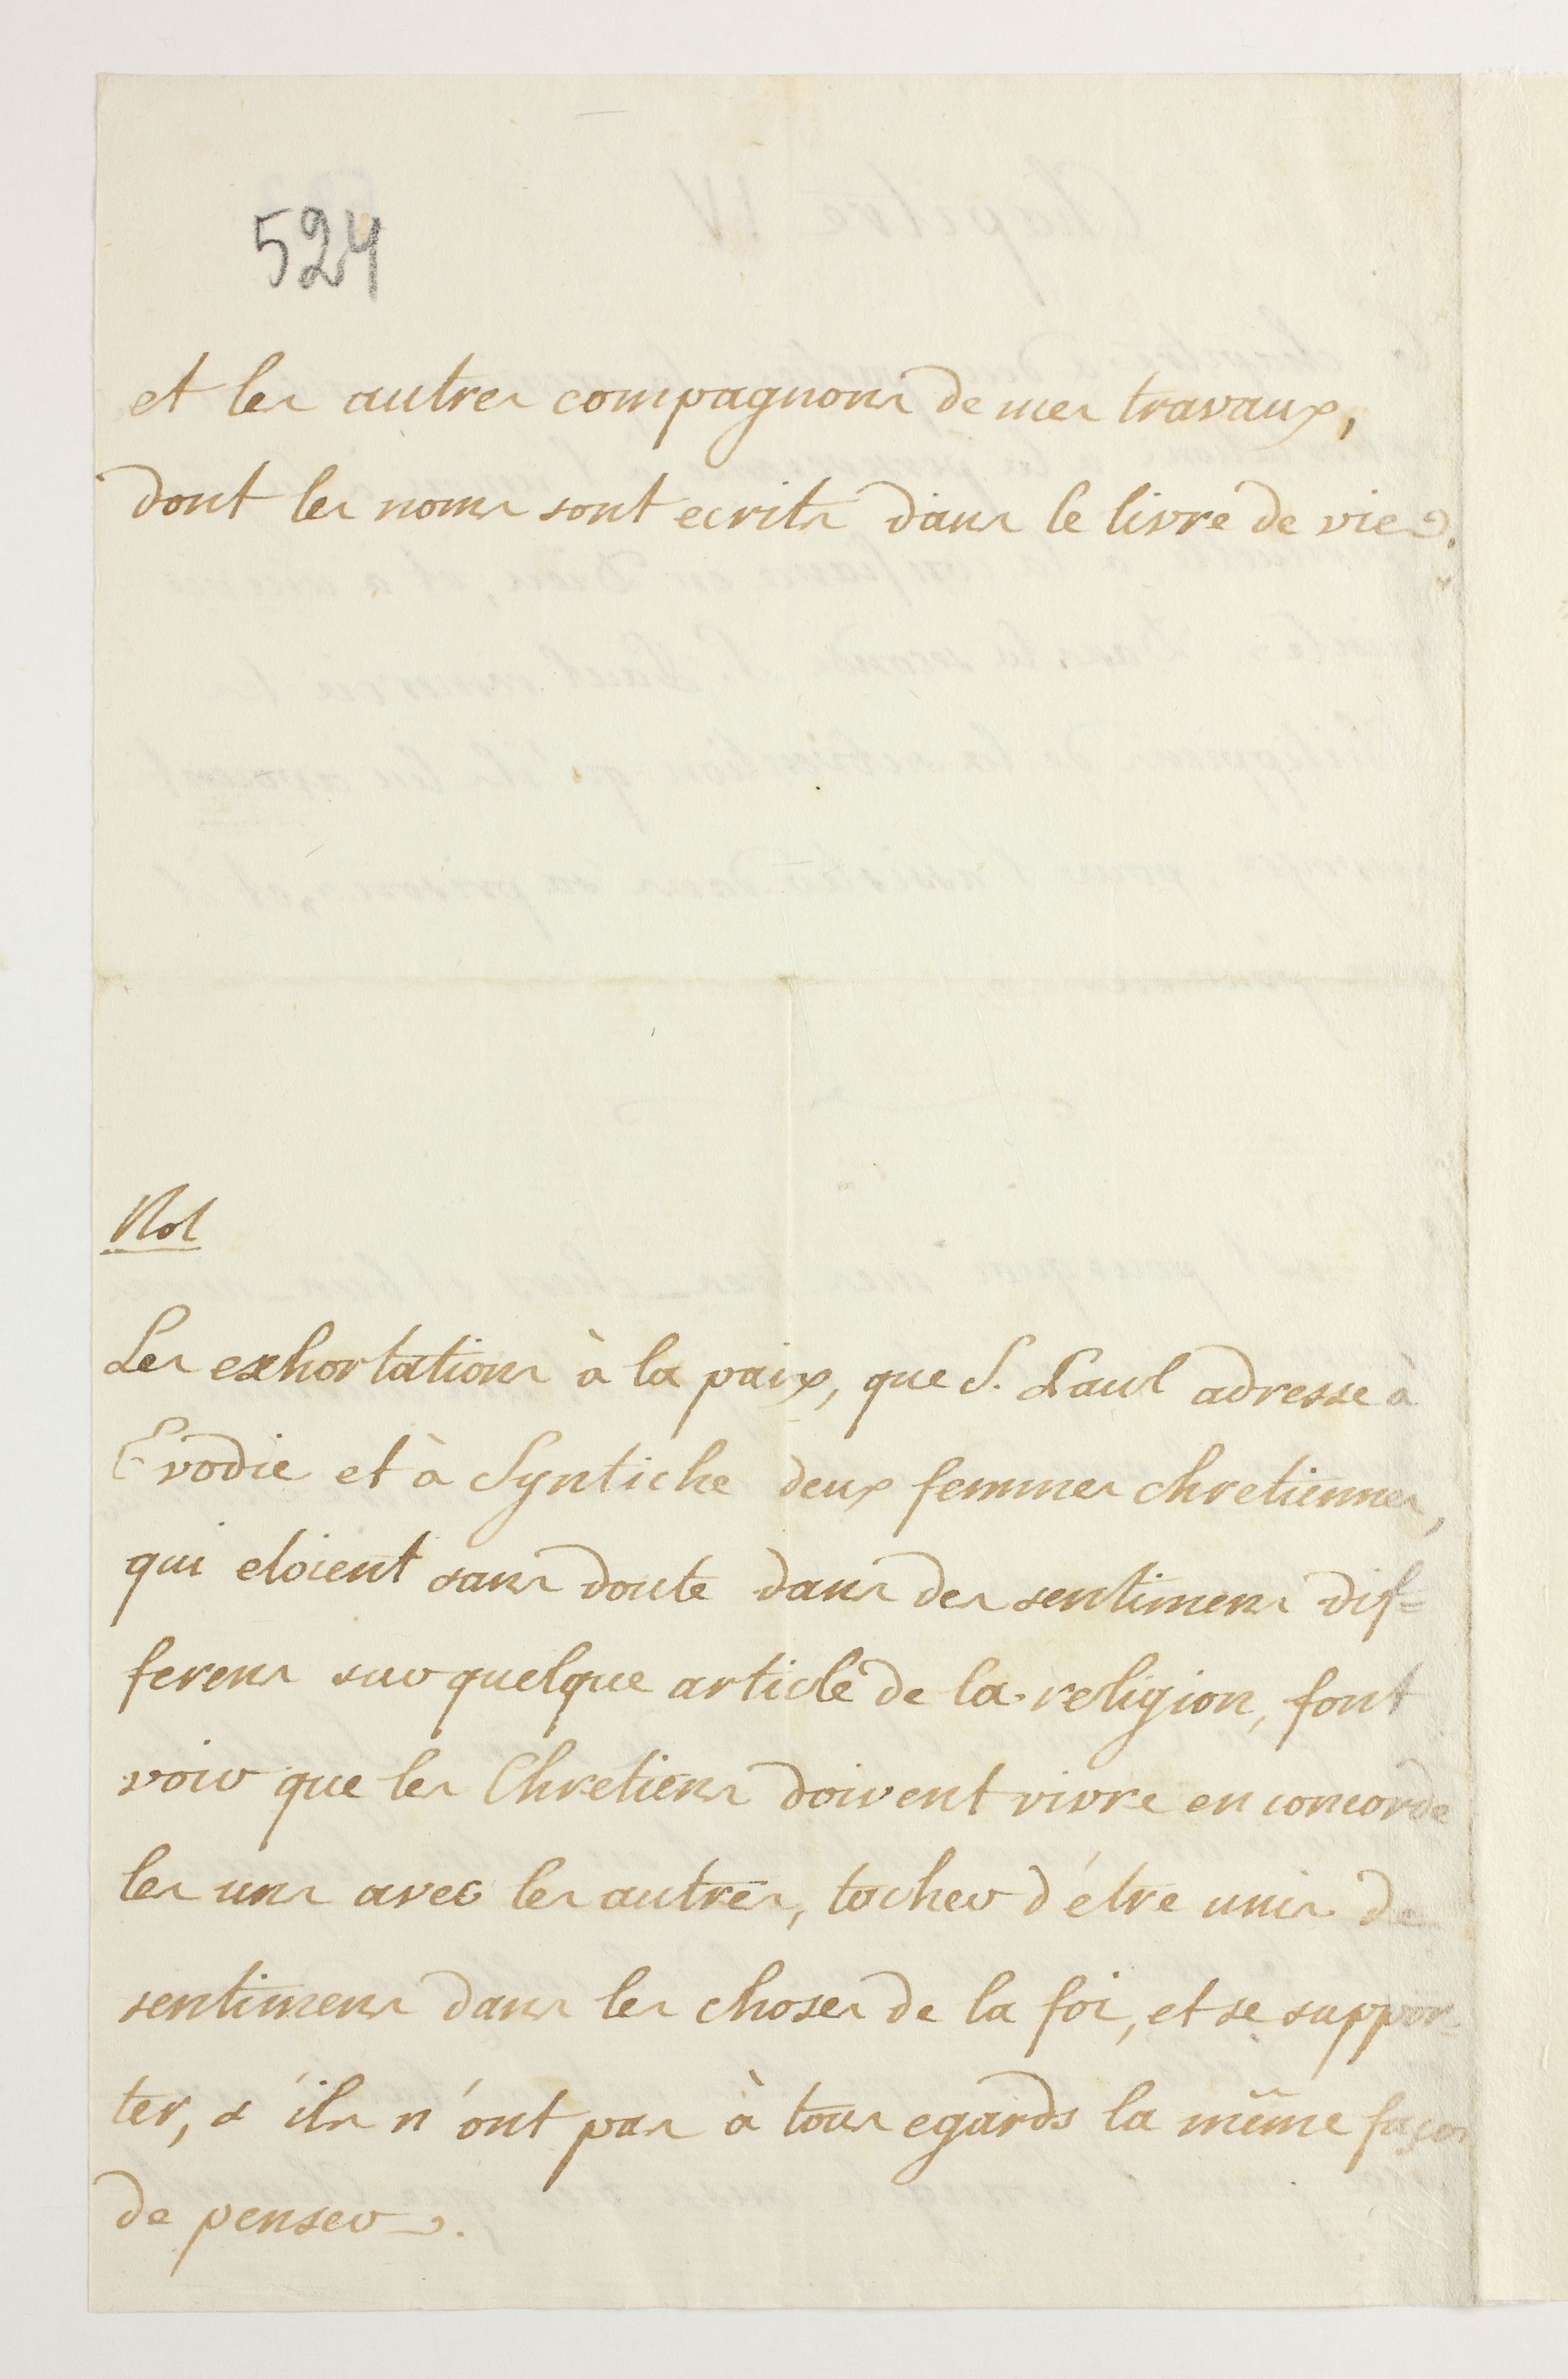 524
et les autres compagnons de mes travaux,
dont les noms sont ecrits dans le livre de vie.
Not
Les exhortations à la paix, que S. Paul adresse à
Evodie et à Syntiche deux femmes chretiennes,
qui etoient sans doute dans des sentimens dif=
ferens sur quelque article de la religion, font
voir que les Chretiens doivent vivre en concorde
les uns avec les autres, tacher d'étre unis de
sentimens dans les choses de la foi, et se suppor-
ter, s'ils n'ont pas à tous egards la même façon
de penser.